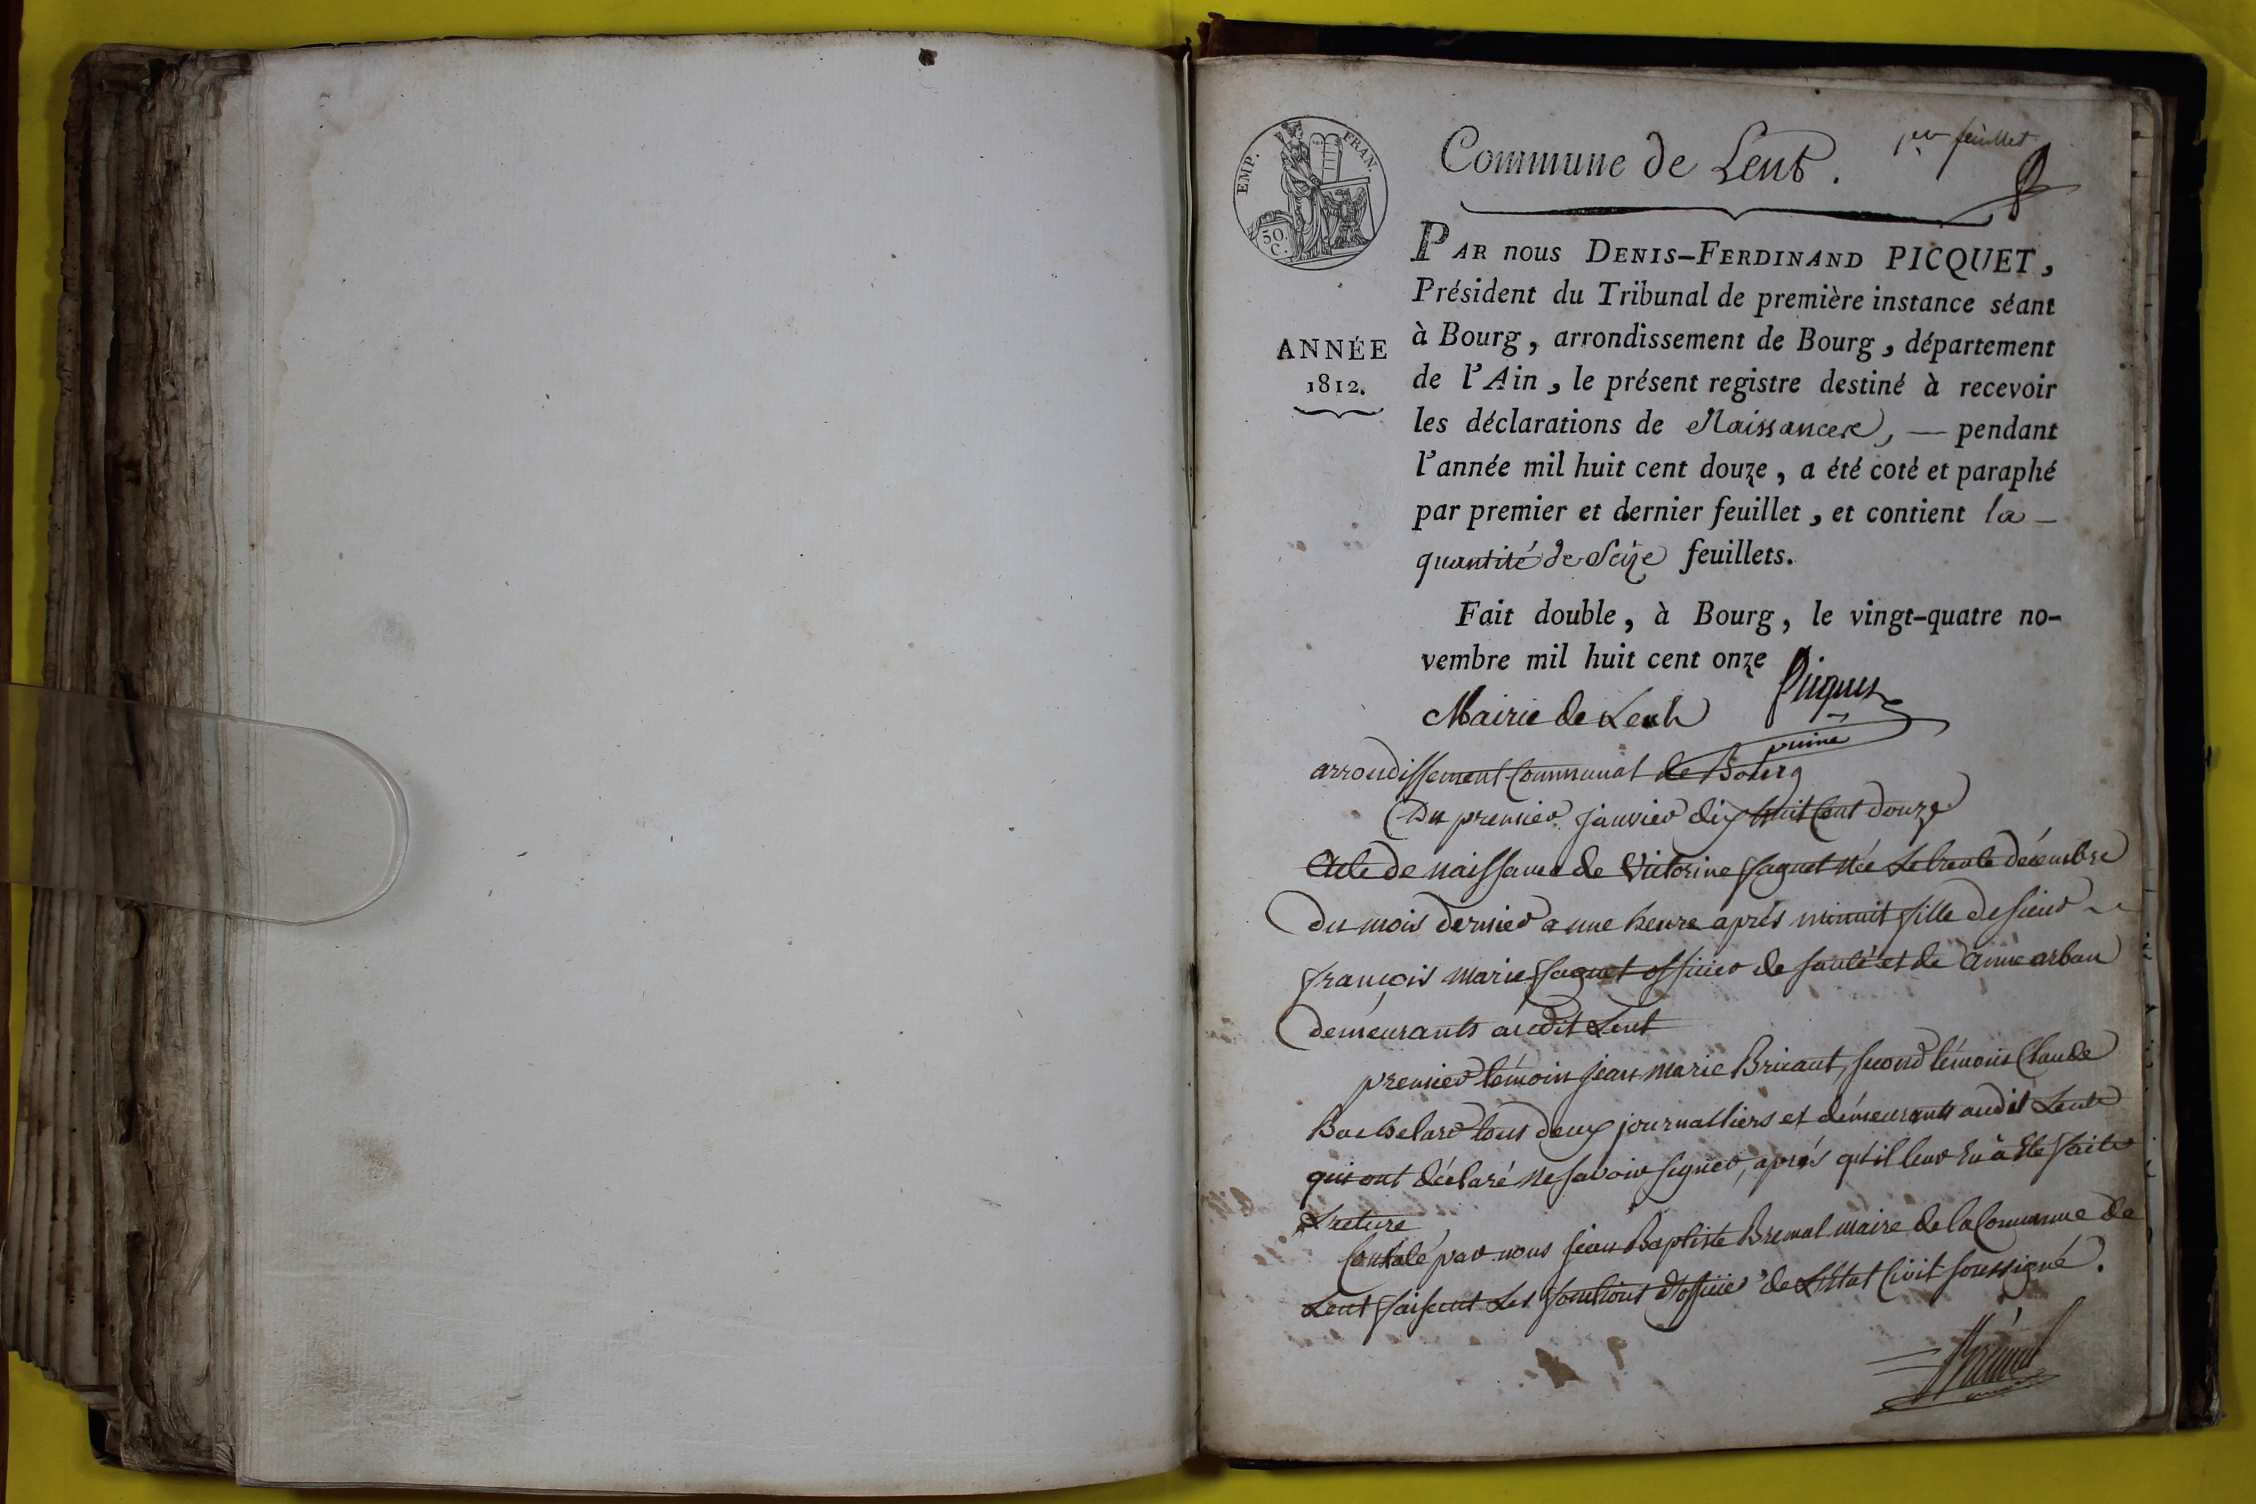 Commune de Lent. 1er feuillet
EMP. FRAN.
50. C.
PAR nous DENIS-FERDINAND PICQUET,
Président du Tribunal de première instance séant
à Bourg, arrondissement de Bourg, département
ANNÉE
1812.
de l'Ain, le présent registre destiné à recevoir
les déclarations de Naissances, — pendant
l'année mil huit cent douze, a été coté et paraphé
par premier et dernier feuillet, et contient la —
quantité de Seize feuillets.
Fait double, à Bourg, le vingt-quatre no-
vembre mil huit cent onze
Picquet
Mairie de Lent
arrondissement Communal de Bourg
Du premier janvier dix huit Cent douze
Acte de naissance de Victorine faguet née Le trente décembre
du mois dernier a une heure après minuit fille de sieur
françois marie faguet officier de santé et de Anne arban
demeurants audit Lent
premier témoin jean marie Brivant, second témoin Claude
Bachelard tous deux journalliers et démeurants audit Lent
qui ont déclaré ne savoir signer, aprés qu'il leur En à Eté faite
Lecture
Constaté par nous jean Baptiste Bremal maire de la Commune de
Lent faisant Les fonctions d'officier de L'Etat Civil soussigné.